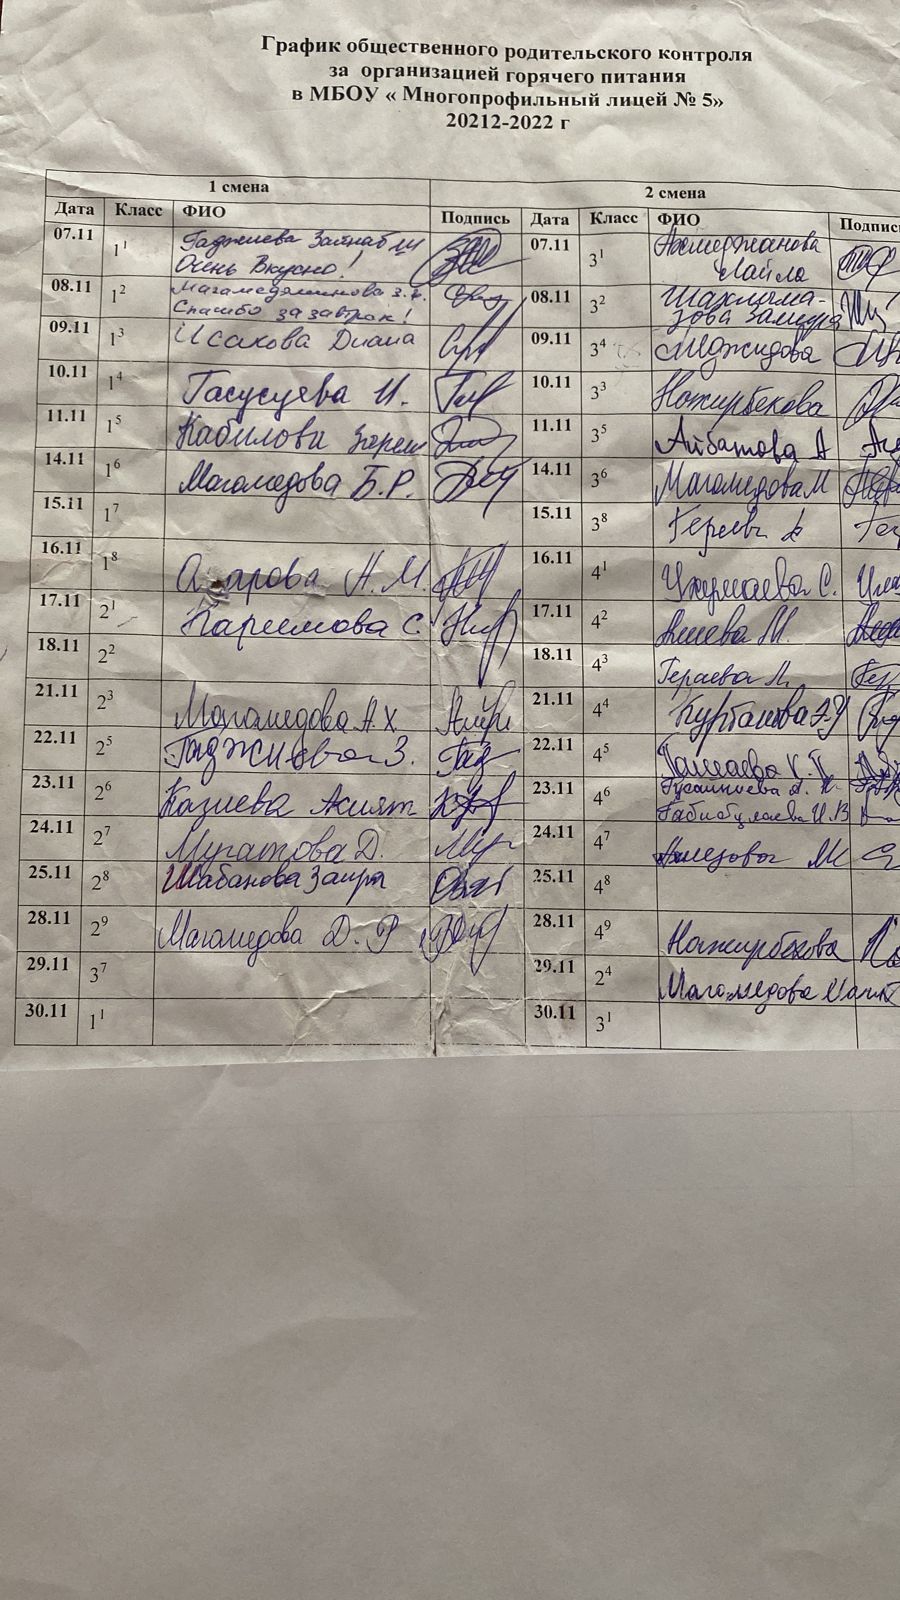 График общественного родительского контроля
за организацией горячего питания
в МБОУ « Многопрофильный лицей № 5»
20212-2022 г
1 смена 2 смена
Дата Класс ФИО Подпись Дата Класс ФИО Подпись
07.11 1¹ Гаджиева Зайнаб 07.11 3¹ Ахмеджанова
Очень Вкусно! Лайла
08.11 1² З. 08.11 3² Шахлама-
Спасибо за завтрак! зова Замира
09.11 1³ Исакова Диана 09.11 3⁴ Меджидова
10.11 1⁴ И. 10.11 3³ Нажирбекова
11.11 1⁵ Кабилова 11.11 3⁵ Айбатова А
14.11 1⁶ Магомедова Б.Р. 14.11 3⁶ Магомедова М
15.11 1⁷ 15.11 3⁸
16.11 1⁸ Н.М. 16.11 4¹ С.
17.11 2¹ Каримова С. 17.11 4² Алиева М.
18.11 2² 18.11 4³ Гераева
21.11 2³ Магомедова А.Х 21.11 4⁴ Курбанова З.У
22.11 2⁵ Гаджиева З. 22.11 4⁵
23.11 2⁶ Казиева Асият 23.11 4⁶
Габибулаева И.В
24.11 2⁷ Муратова Д. 24.11 4⁷ М
25.11 2⁸ Шабанова Заира 25.11 4⁸
28.11 2⁹ Магомедова Д. Р 28.11 4⁹ Нажирбекова
29.11 3⁷ 29.11 2⁴ Магомедова
30.11 1¹ 30.11 3¹